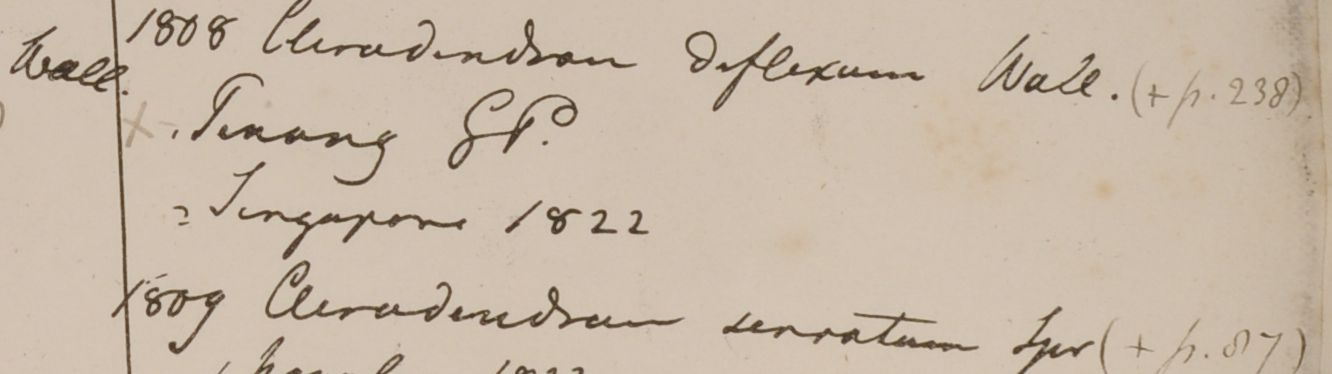 Wall.
1808 Clerodendron deflexum Wall. (+ p. 238)
× . Penang GP.
2 Singapore 1822
1809 Clerodendron serratum Spr (+ p. 87)
1822